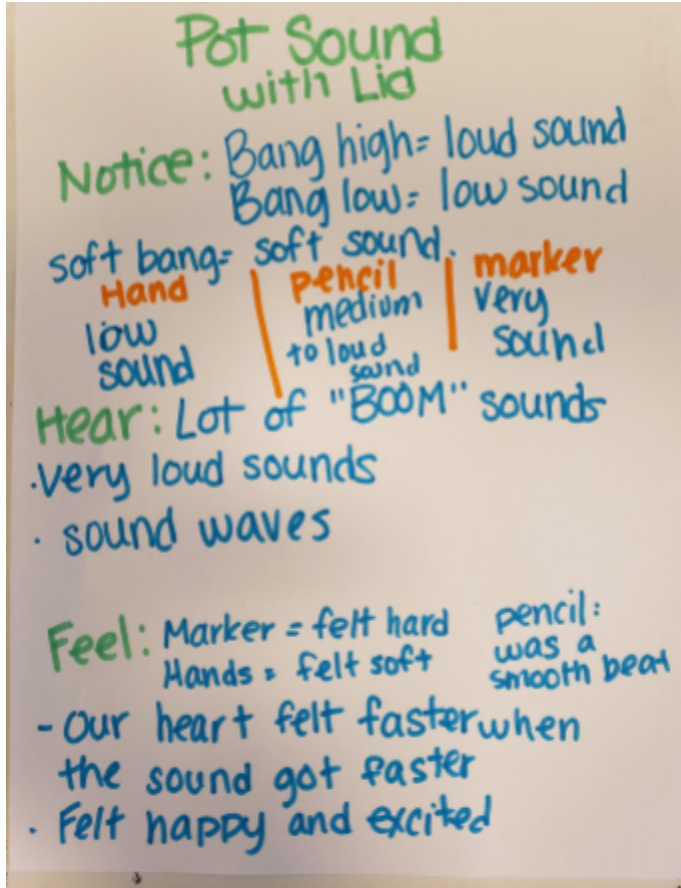 Pot Sound
with Lid
Notice: Bang high = loud sound
Bang low = low sound
soft bang = soft sound.
Hand
low
sound
pencil
medium
to loud
sound
marker
very
sound
Hear: Lot of "BOOM" sounds
·very loud sounds
· sound waves
Feel: Marker = felt hard
Hands = felt soft
pencil:
was a
smooth beat
- Our heart felt faster when
the sound got faster
· Felt happy and excited